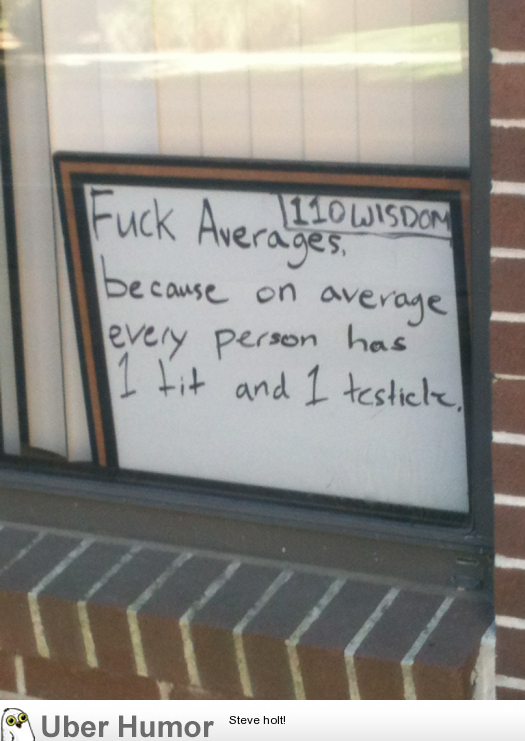 110 WISDOM
Fuck Averages,
because on average
every person has
1 tit and 1 testicle.
Uber Humor
Steve holt!